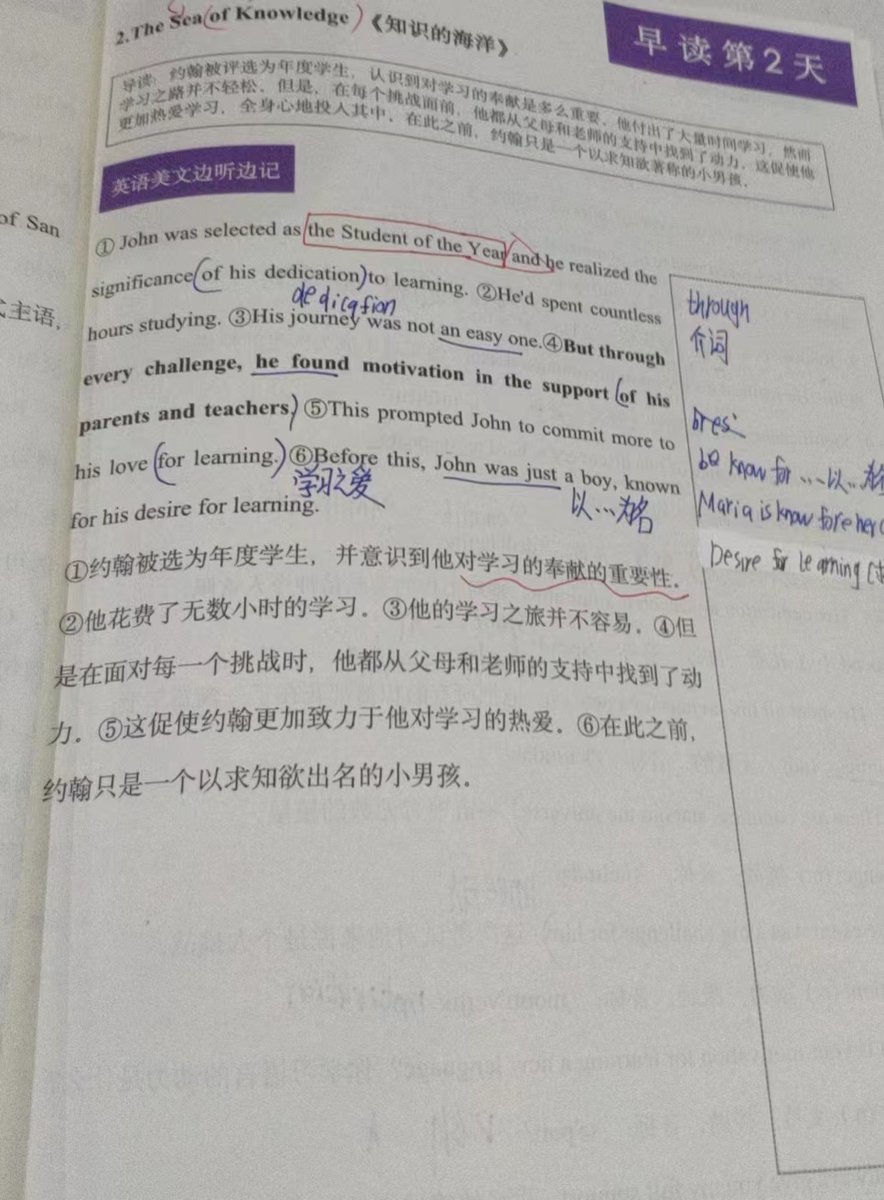 2.The Sea of Knowledge 《知识的海洋》
早读第2天
导读：约翰被评选为年度学生，认识到对学习的奉献是多么重要。他付出了大量时间学习，然而
学习之路并不轻松。但是，在每个挑战面前，他都从父母和老师的支持中找到了动力。这促使他
更加热爱学习，全身心地投入其中。在此之前，约翰只是一个以求知欲著称的小男孩。
英语美文边听边记
of San
式主语，
① John was selected as the Student of the Year and he realized the
significance of his dedication to learning. ②He'd spent countless
dedication
hours studying. ③His journey was not an easy one.④But through
every challenge, he found motivation in the support of his
parents and teachers. ⑤This prompted John to commit more to
his love for learning. ⑥Before this, John was just a boy, known
学习之爱
以…为名
for his desire for learning.
through
介词
be know for …以…为名
Maria is know for her
Desire for learning
①约翰被选为年度学生，并意识到他对学习的奉献的重要性。
②他花费了无数小时的学习。③他的学习之旅并不容易，④但
是在面对每一个挑战时，他都从父母和老师的支持中找到了动
力。⑤这促使约翰更加致力于他对学习的热爱。⑥在此之前，
约翰只是一个以求知欲出名的小男孩。